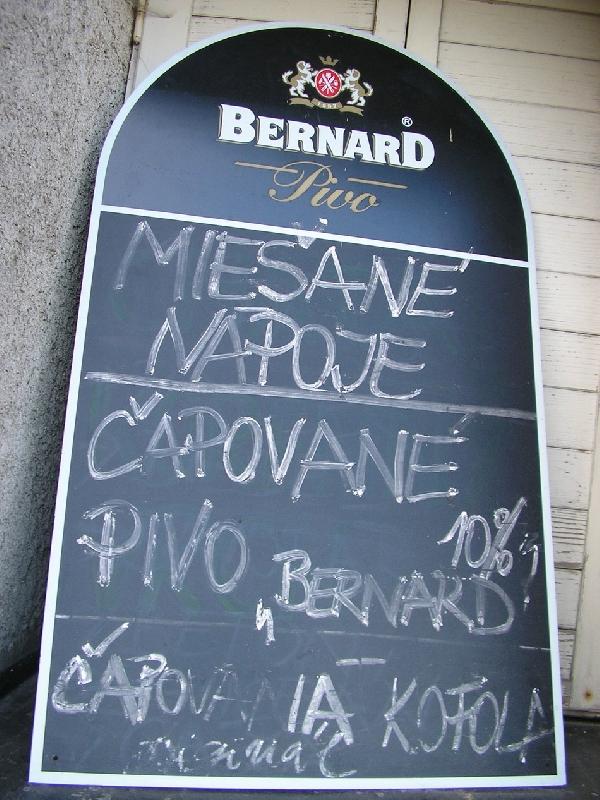 BERNARD®
Pivo
MIEŠANÉ
NÁPOJE
ČAPOVANÉ
PIVO 10%
BERNARD
ČAPOVANÁ KOFOLA